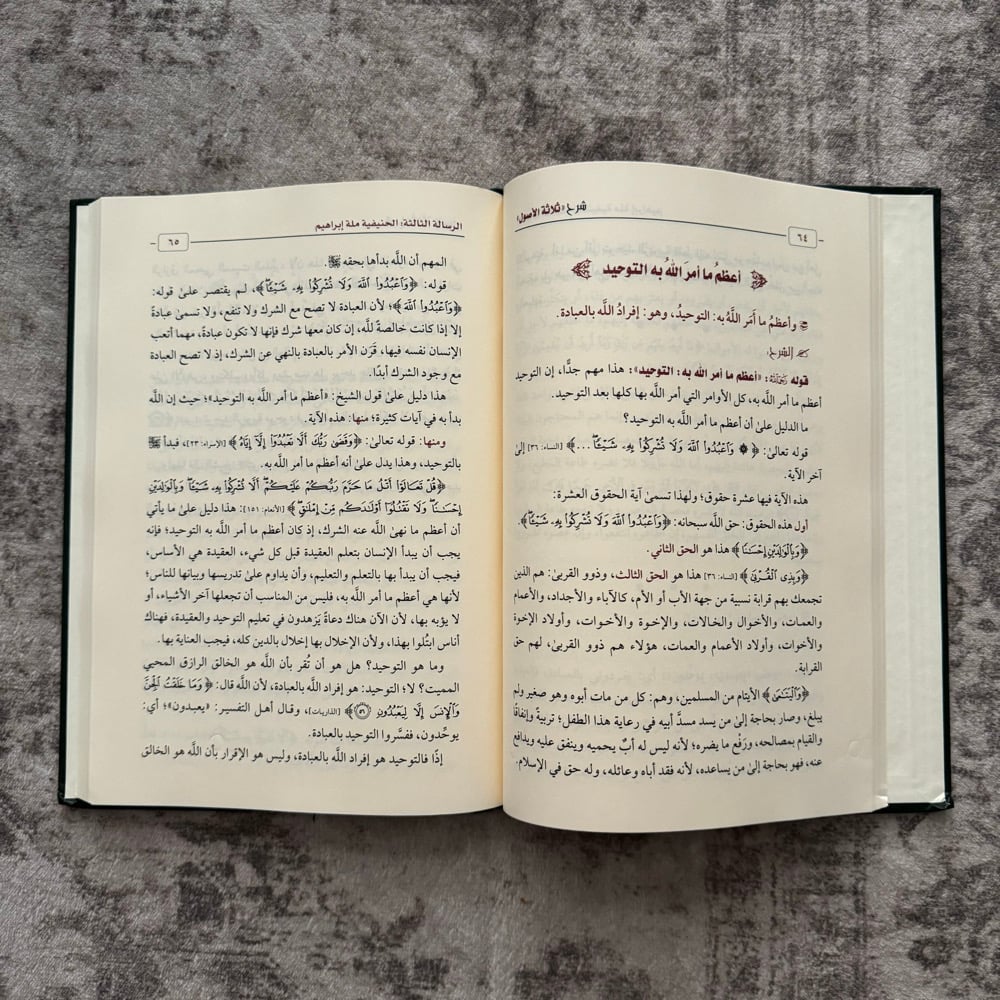 شرح «ثلاثة الأصول»
٦٤
أعظمُ ما أمرَ اللهُ به التوحيد
وأعظمُ ما أَمَر اللَّهُ به: التوحيدُ، وهو: إفرادُ اللَّه بالعبادة.
الشرح:
قوله رَحِمَهُ اللَّهُ: «أعظم ما أمر الله به: التوحيد»: هذا مهم جدًّا، إن التوحيد
أعظم ما أمر اللَّه به، كل الأوامر التي أمر اللَّه بها كلها بعد التوحيد.
ما الدليل علىٰ أن أعظم ما أمر اللَّه به التوحيد؟
قوله تعالىٰ: ﴿۞ وَٱعْبُدُوا۟ ٱللَّهَ وَلَا تُشْرِكُوا۟ بِهِۦ شَيْـًٔا ...﴾ [النساء: ٣٦] إلىٰ
آخر الآية.
هذه الآية فيها عشرة حقوق؛ ولهذا تسمىٰ آية الحقوق العشرة:
أول هذه الحقوق: حق اللَّه سبحانه: ﴿وَٱعْبُدُوا۟ ٱللَّهَ وَلَا تُشْرِكُوا۟ بِهِۦ شَيْـًٔا﴾.
﴿وَبِٱلْوَٰلِدَيْنِ إِحْسَٰنًا﴾ هذا هو الحق الثاني.
﴿وَبِذِى ٱلْقُرْبَىٰ﴾ [النساء: ٣٦] هذا هو الحق الثالث، وذوو القربىٰ: هم الذين
تجمعك بهم قرابة نسبية من جهة الأب أو الأم، كالآباء والأجداد، والأعمام
والعمات، والأخوال والخالات، والإخوة والأخوات، وأولاد الإخوة
والأخوات، وأولاد الأعمام والعمات، هؤلاء هم ذوو القربىٰ، لهم حق
القرابة.
﴿وَٱلْيَتَٰمَىٰ﴾ الأيتام من المسلمين، وهم: كل من مات أبوه وهو صغير ولم
يبلغ، وصار بحاجة إلىٰ من يسد مسدَّ أبيه في رعاية هذا الطفل؛ تربيةً وإنفاقًا
والقيام بمصالحه، ورَفْع ما يضره؛ لأنه ليس له أبٌ يحميه وينفق عليه ويدافع
عنه، فهو بحاجة إلىٰ من يساعده، لأنه فقد أباه وعائله، وله حق في الإسلام.
الرسالة الثالثة: الحنيفية ملة إبراهيم
٦٥
المهم أن اللَّه بدأها بحقه ﷻ.
قوله: ﴿وَٱعْبُدُوا۟ ٱللَّهَ وَلَا تُشْرِكُوا۟ بِهِۦ شَيْـًٔا﴾، لم يقتصر علىٰ قوله:
﴿وَٱعْبُدُوا۟ ٱللَّهَ﴾؛ لأن العبادة لا تصح مع الشرك ولا تنفع، ولا تسمىٰ عبادةً
إلا إذا كانت خالصةً للَّه، إن كان معها شرك فإنها لا تكون عبادةً، مهما أتعب
الإنسان نفسه فيها، قَرَن الأمر بالعبادة بالنهي عن الشرك، إذ لا تصح العبادة
مع وجود الشرك أبدًا.
هذا دليل علىٰ قول الشيخ: «أعظم ما أمر اللَّه به التوحيد»؛ حيث إن اللَّه
بدأ به في آيات كثيرة؛ منها: هذه الآية.
ومنها: قوله تعالىٰ: ﴿وَقَضَىٰ رَبُّكَ أَلَّا تَعْبُدُوٓا۟ إِلَّآ إِيَّاهُ﴾ [الإسراء: ٢٣]، فبدأ ﷻ
بالتوحيد، وهذا يدل علىٰ أنه أعظم ما أمر اللَّه به.
﴿قُلْ تَعَالَوْا۟ أَتْلُ مَا حَرَّمَ رَبُّكُمْ عَلَيْكُمْ أَلَّا تُشْرِكُوا۟ بِهِۦ شَيْـًٔا وَبِٱلْوَٰلِدَيْنِ
إِحْسَٰنًا وَلَا تَقْتُلُوٓا۟ أَوْلَٰدَكُم مِّنْ إِمْلَٰقٍ﴾ [الأنعام: ١٥١]: هذا دليل علىٰ ما يأتي
أن أعظم ما نهىٰ اللَّه عنه الشرك، إذ كان أعظم ما أمر اللَّه به التوحيد؛ فإنه
يجب أن يبدأ الإنسان بتعلم العقيدة قبل كل شيء، العقيدة هي الأساس،
فيجب أن يبدأ بها بالتعلم والتعليم، وأن يداوم علىٰ تدريسها وبيانها للناس؛
لأنها هي أعظم ما أمر اللَّه به، فليس من المناسب أن تجعلها آخر الأشياء، أو
لا يؤبه بها، لأن الآن هناك دعاة يَزهدون في تعليم التوحيد والعقيدة، فهناك
أناس ابتُلوا بهذا، ولأن الإخلال بها إخلال بالدين كله، فيجب العناية بها.
وما هو التوحيد؟ هل هو أن تُقر بأن اللَّه هو الخالق الرازق المحيي
المميت؟ لا؛ التوحيد: هو إفراد اللَّه بالعبادة، لأن اللَّه قال: ﴿وَمَا خَلَقْتُ ٱلْجِنَّ
وَٱلْإِنسَ إِلَّا لِيَعْبُدُونِ ۝٥٦﴾ [الذاريات]، وقال أهل التفسير: «يعبدون»؛ أي:
يوحِّدون، ففسَّروا التوحيد بالعبادة.
إذًا فالتوحيد هو إفراد اللَّه بالعبادة، وليس هو الإقرار بأن اللَّه هو الخالق